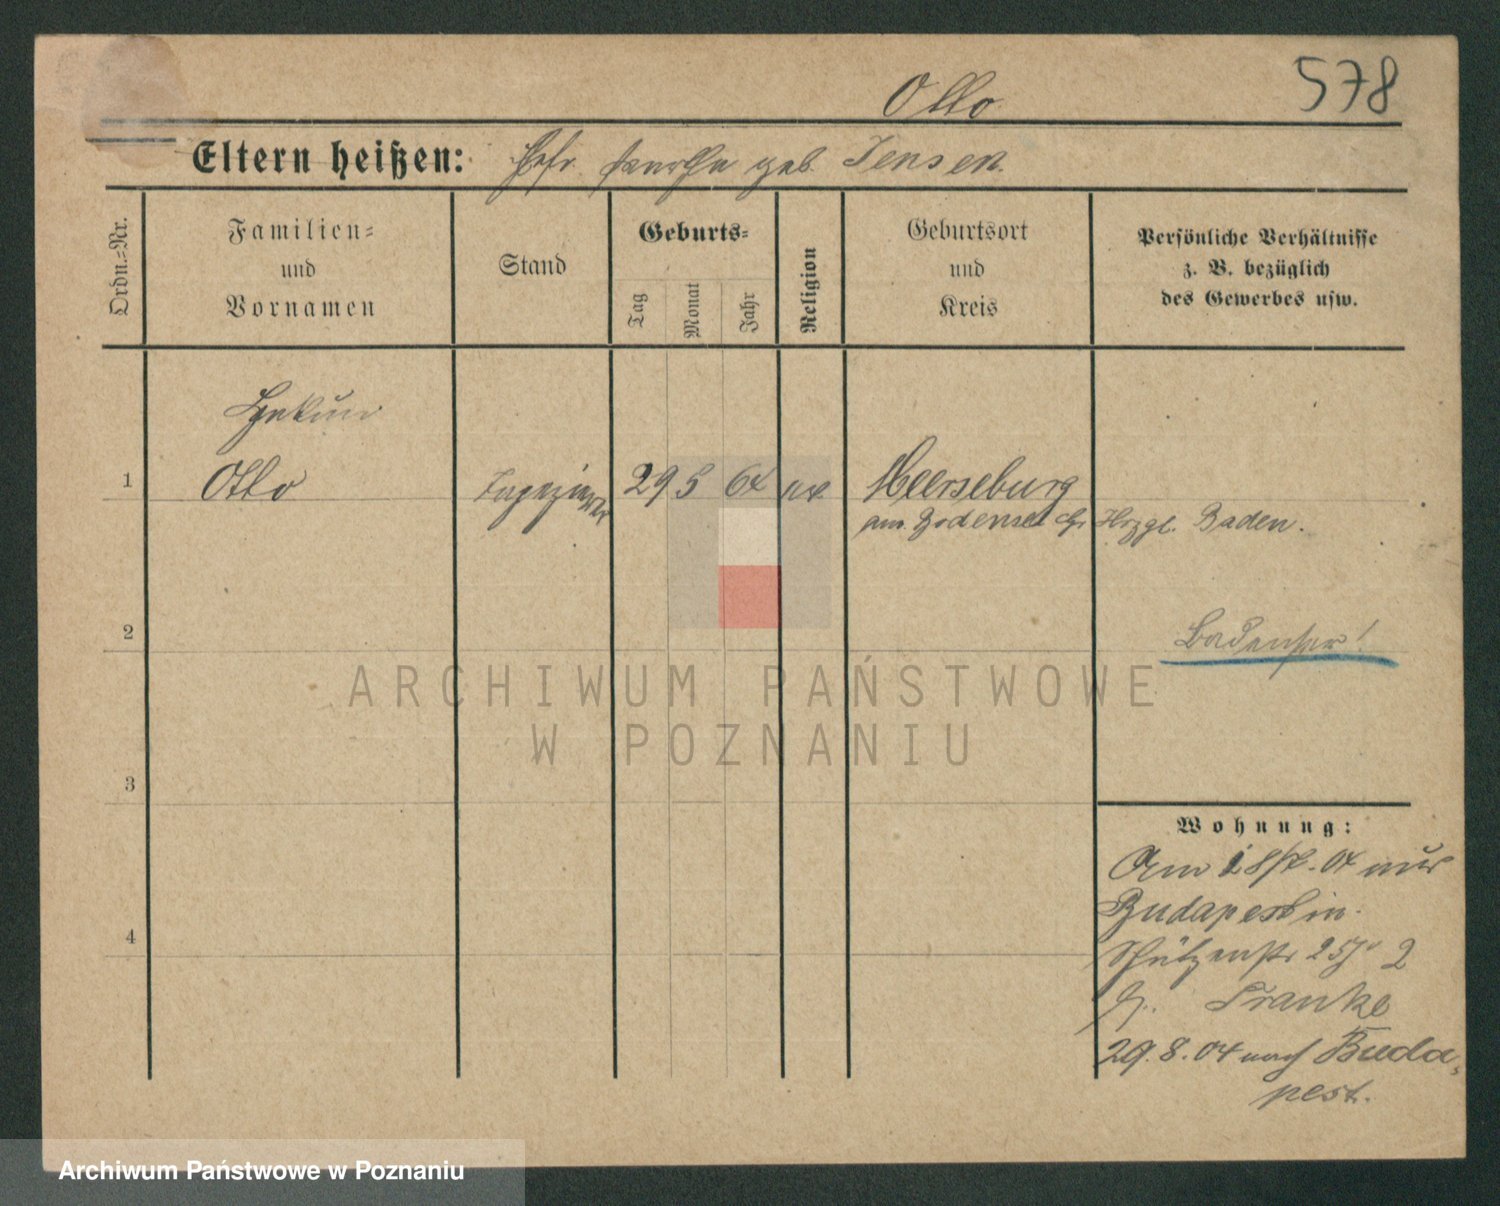 578
Otto
Eltern heißen: geb. Jensen.
Ordn.-Nr.
Familien-
und
Vornamen
Stand
Geburts-
Tag
Monat
Jahr
Religion
Geburtsort
und
Kreis
Persönliche Verhältnisse
z. B. bezüglich
des Gewerbes usw.
1 Otto Ingenieur 29 5 64 Meerseburg
am Bodensee Gr Hrzgl. Baden.
2 Badenser!
3
4
Wohnung:
Am 04 aus
Budapest in
Schützenstr 25
Franke
29. 8. 04 nach Buda
pest.
ARCHIWUM PAŃSTWOWE
W POZNANIU
Archiwum Państwowe w Poznaniu